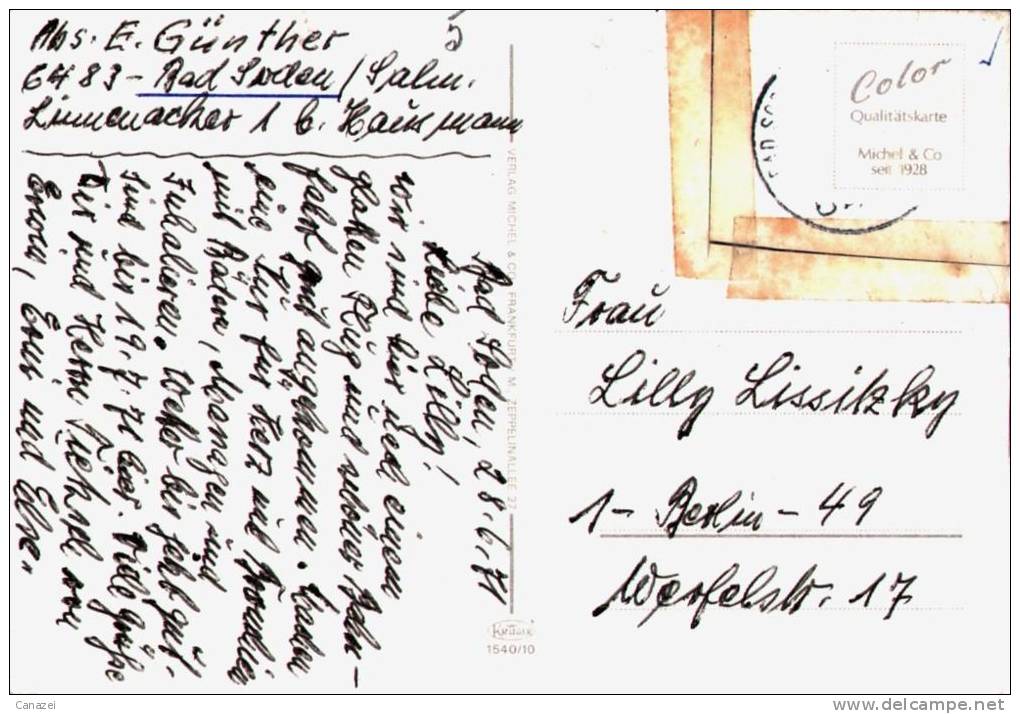 Abs. E. Günther
6483 - Bad Soden / Salm.
1 b. Hausmann
Bad Soden, 28.6.71
Liebe Lilly!
Wir sind hier nach einem
guten Flug und schöner Bahn-
fahrt gut angekommen. machen
eine Kur für Herz und Bronchien
mit Bädern, Massagen und
Inhalieren. Wetter bis jetzt gut.
Sind bis 19.7.71 hier. Viele Grüße
Dir und Herrn von
Erwin, Erni und Elke.
VERLAG MICHEL & CO. FRANKFURT/M. ZEPPELINALLEE 27
Krüger
1540/10
Color
Qualitätskarte
Michel & Co
seit 1928
BAD SO
Frau
Lilly Lissitzky
1 - Berlin - 49
Werfelstr. 17
Canazei
delcampe.net